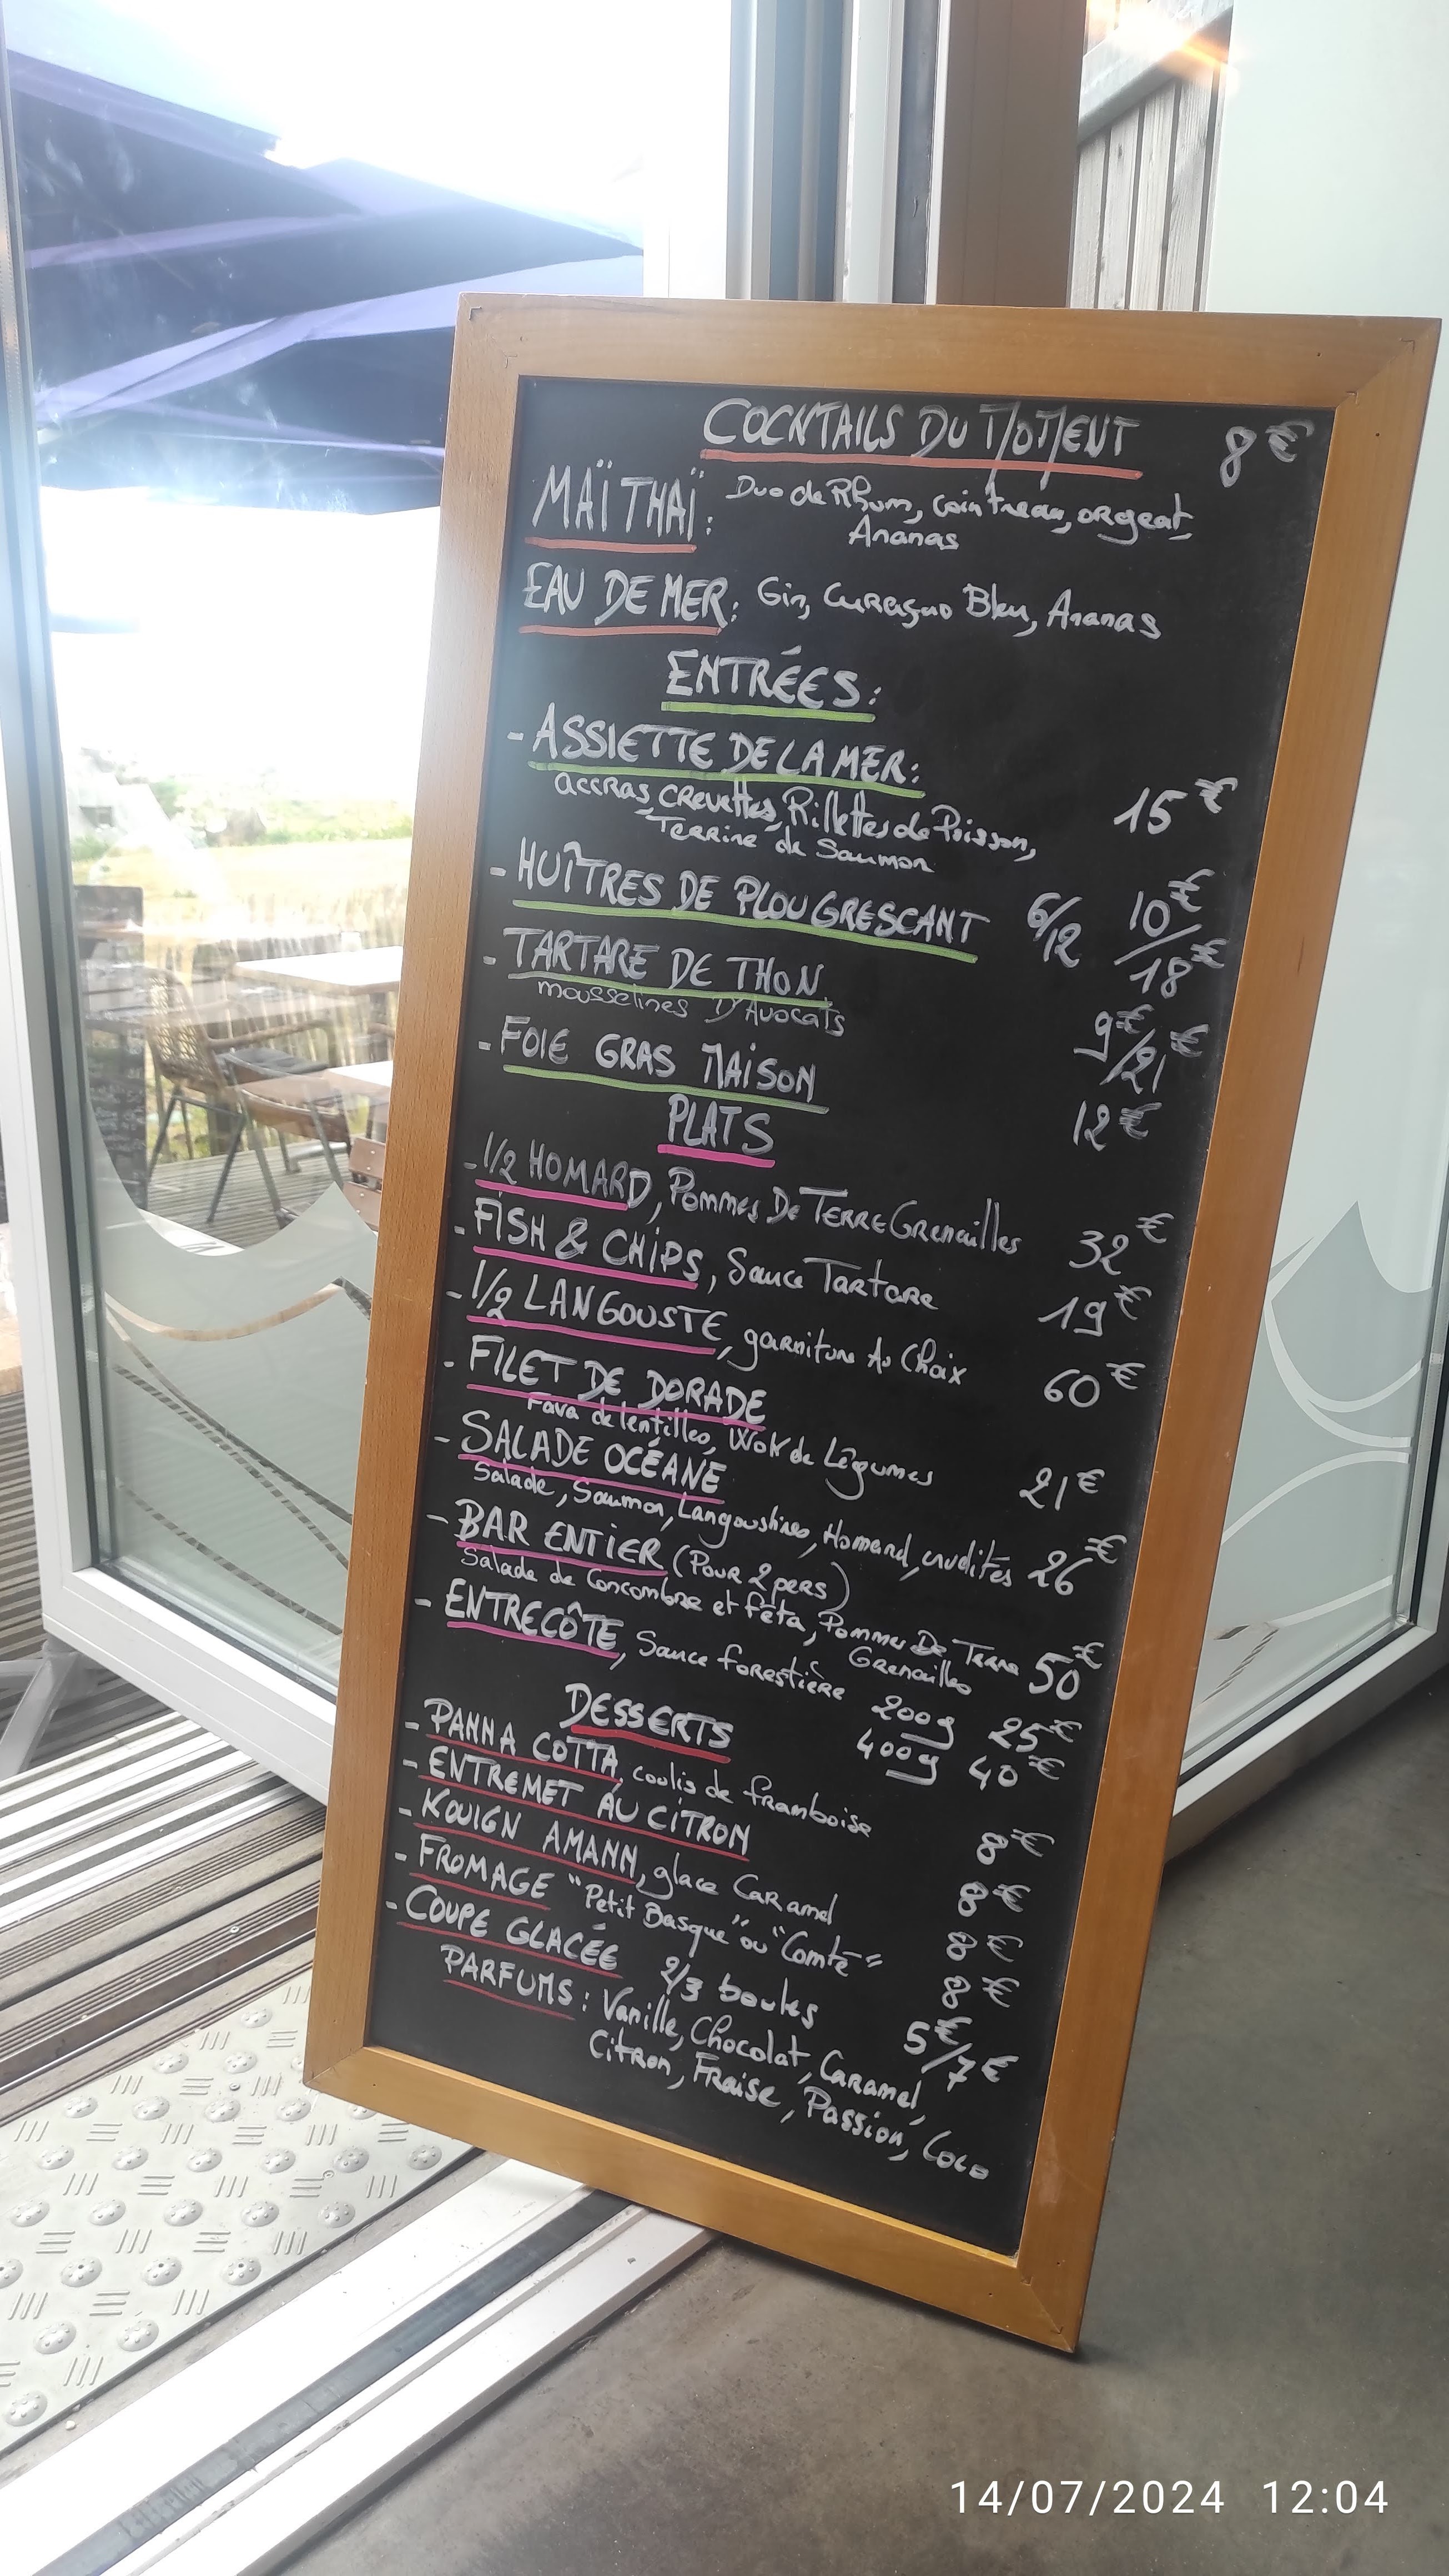 COCKTAILS DU MOMENT 8€
MAÏ THAÏ : Duo de Rhum, Cointreau, orgeat,
Ananas
EAU DE MER : Gin, Curaçao Bleu, Ananas
ENTRÉES :
- ASSIETTE DE LA MER :
accras, crevettes, Rillettes de Poisson, 15€
Terrine de Saumon
- HUÎTRES DE PLOUGRESCANT 6/12 10€/18€
- TARTARE DE THON
mousselines D'Avocats 9€/21€
- FOIE GRAS MAISON 12€
PLATS
- 1/2 HOMARD, Pommes De Terre Grenailles 32€
- FISH & CHIPS, Sauce Tartare 19€
- 1/2 LANGOUSTE, garniture Au Choix 60€
- FILET DE DORADE
Fava de lentilles, Wok de Légumes 21€
- SALADE OCÉANE
Salade, Saumon, Langoustines, Homard, crudités 26€
- BAR ENTIER (Pour 2 pers)
Salade de Concombre et fêta, Pommes De Terre 50€
Grenailles
- ENTRECÔTE, Sauce forestière 200g 25€
400g 40€
DESSERTS
- PANNA COTTA, coulis de framboise 8€
- ENTREMET AU CITRON 8€
- KOUIGN AMANN, glace Caramel 8€
- FROMAGE "Petit Basque" ou "Comté" 8€
- COUPE GLACÉE 2/3 boules 5€/7€
PARFUMS : Vanille, Chocolat, Caramel,
Citron, Fraise, Passion, Coco
14/07/2024 12:04